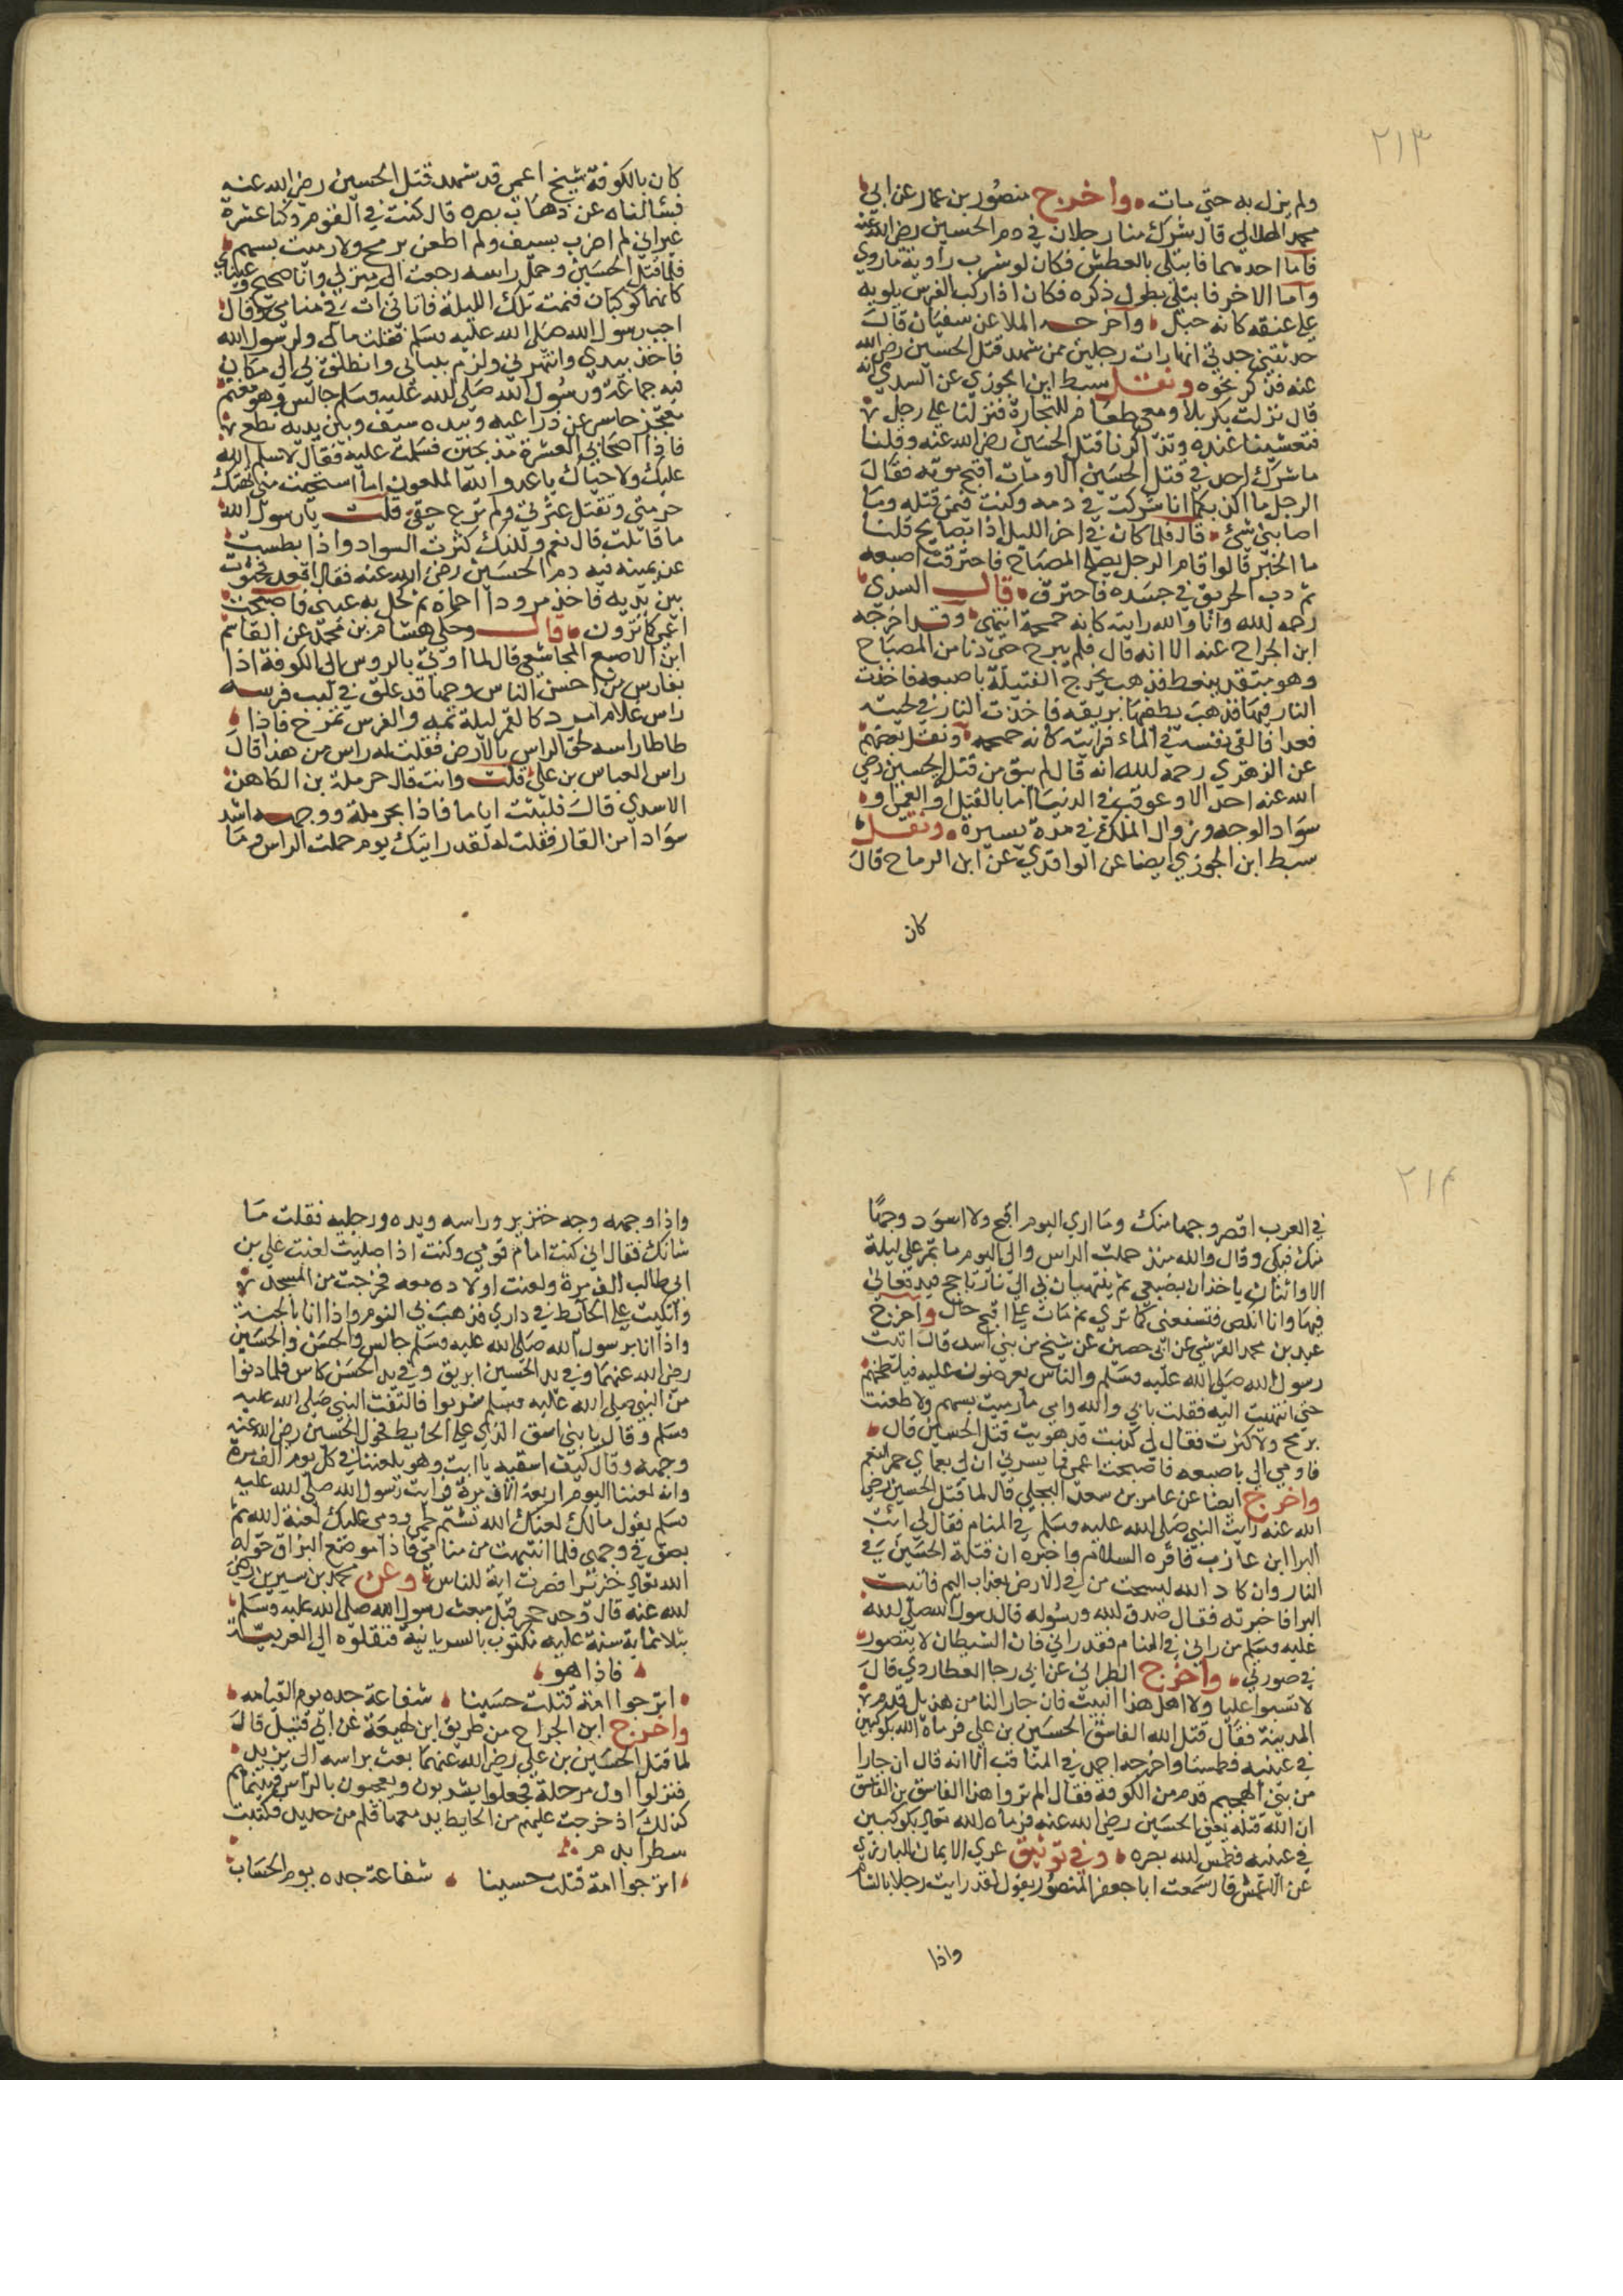 ٢١٣
ولم يزل به حتى مات واخرج منصور بن عمار عن ابي
محمد الهلالي قال شرك منا رجلان في دم الحسين رضي الله عنه
فاما احدهما فابتلى بالعطش فكان لو شرب راوية ما روي
واما الاخر فابتلي بطول ذكره فكان اذا ركب الفرس يلويه
على عنقه كانه حبل واخرج الملا عن سفيان قال
حدثتني جدتي انها رات رجلين ممن شهد قتل الحسين رضي الله
عنه فذكر نحوه ونقل سبط ابن الجوزي عن السدي انه
قال نزلت بكربلا ومعي طعام للتجارة فنزلنا على رجل
فتعشينا عنده وتذاكرنا قتل الحسين رضي الله عنه وقلنا
ما شرك احد في قتل الحسين الا ومات اقبح موته فقال
الرجل ما اكذبكم انا شركت في دمه وكنت فمن قتله وما
اصابني شئ قال فلما كان في اخر الليل اذا بصايح قلنا
ما الخبر قالوا قام الرجل يصلح المصباح فاحترقت اصبعه
ثم دب الحريق في جسده فاحترق قال السدي
رحمه لله وانا والله رايته كانه حممة انتهى وقد اخرجه
ابن الجراح عنه الا انه قال فلم يبرح حتى دنا من المصباح
وهو يتقد بنفط فذهب يخرج الفتيلة باصبعه فاخذت
النار فيها فذهب يطفيها بريقه فاخذت النار في لحيته
فعدا فالقى نفسه في الماء فرايته كانه حممه ونقل بعضهم
عن الزهري رحمه لله انه قال لم يبق من قتل الحسين رضي
الله عنه احد الا وعوقب في الدنيا اما بالقتل او العمى او
سواد الوجه وزوال الملك في مدة يسيرة ونقل
سبط ابن الجوزي ايضا عن الواقدي عن ابن الرماح قال
كان
كان بالكوفة شيخ اعمى قد شهد قتل الحسين رضي الله عنه
فسالناه عن ذهاب بصره قال كنت في القوم وكنا عشرة
غير اني لم اضرب بسيف ولم اطعن برمح ولا رميت بسهم
فلما قتل الحسين وحمل راسه رجعت الى منزلي وانا صحيح وعيناي
كانهما كوكبان فنمت تلك الليلة فاتاني آت في منامي وقال
اجب رسول الله صلى الله عليه وسلم فقلت مالي ولرسول الله
فاخذ بيدي وانتهرني ولزم بلبابي وانطلق بي الى مكان
فيه جماعة ورسول الله صلى الله عليه وسلم جالس وهو مغتم
معتجز حاسر عن ذراعيه وبيده سيف وبين يديه نطع
فاذا اصحابي العشرة مذبحين فسلمت عليه فقال لا سلم الله
عليك ولا حياك يا عدو الله الملعون اما استحيت مني تهتك
حرمتي وتقتل عترتي ولم ترع حقي قلت يا رسول الله
ما قاتلت قال نعم ولكنك كثرت السواد واذا بطست
عن يمينه فيه دم الحسين رضي الله عنه فقال اقعد فجثوت
بين يديه فاخذ مرودا احماه ثم كحل به عيني فاصبحت
اعمى كما ترون قال وحكى هشام بن محمد عن القاسم
ابن الاصبع المجاشعي قال لما اوتي بالروس الى الكوفة اذا
بفارس من احسن الناس وجها قد علق في لبب فرسه
راس غلام امرد كالقمر ليلة تمه والفرس تمرح فاذا
طاطا راسه لحق الراس بالارض فقلت له راس من هذا قال
راس العباس بن علي قلت وانت قال حرملة بن الكاهن
الاسدي قال فلبثت اياما فاذا بحرملة ووجهه اشد
سوادا من القار فقلت له لقد رايتك يوم حملت الراس وما
٢١٤
في العرب اقصر وجها منك وما اري اليوم اقبح ولا اسود وجها
منك فبكى وقال والله منذ حملت الراس والى اليوم ما تمر علي ليلة
الا واثنان ياخذان بضبعي ثم ينتهيان بي الى نار تاجج فيدفعاني
فيها وانا انكص فتسفعني كما تري ثم مات على اقبح حال واخرج
عبد بن محمد القرشي عن ابي حصين عن شيخ من بني اسد قال اتيت
رسول الله صلى الله عليه وسلم والناس يعرضون عليه فيلطخهم
حتى انتهيت اليه فقلت بابي والله وامي ما رميت بسهم ولا طعنت
برمح ولا كثرت فقال لي كذبت قد هويت قتل الحسين قال
فاومي الي باصبعه فاصبحت اعمى فما يسرني ان لي بعماي حمر النعم
واخرج ايضا عن عامر بن سعد البجلي قال لما قتل الحسين رضي
الله عنه رايت النبي صلى الله عليه وسلم في المنام فقال لي ائت
البرا ابن عازب فاقره السلام واخبره ان قتلة الحسين في
النار وان كاد الله ليسحت من في الارض بعذاب اليم فاتيت
البرا فاخبرته فقال صدق لله ورسوله قال رسول الله صلى لله
عليه وسلم من راني في المنام فقد راني فان الشيطان لا يتصور
في صورتي واخرج الطبراني عن ابي رجا العطاردي قال
لا تسبوا عليا ولا اهل هذا البيت فان جار النا من هذيل قدم
المدينة فقال قتل الله الفاسق الحسين بن علي فرماه الله بكوكبين
في عينيه فطمسا واخرجه احمد في المناقب الا انه قال ان جارا
من بني الهجيم قدم من الكوفة فقال الم تروا هذا الفاسق بن الفاسق
ان الله قتله يعني الحسين رضي الله عنه فرماه لله تعالى بكوكبين
في عينيه فطمس لله بصره وفي توثيق عري الايمان للبارزي
عن الاعمش قال سمعت ابا جعفر المنصور يقول لقد رايت رجلا بالشام
واذا
واذا وجهه وجه خنزير وراسه ويده ورجليه فقلت ما
شانك فقال اني كنت امام قومي وكنت اذا صليت لعنت علي بن
ابي طالب الف مرة ولعنت اولاده معه فخرجت من المسجد
واتكيت على الحائط في داري فذهب بي النوم واذا انا بالجنة
واذا انا برسول الله صلى الله عليه وسلم جالس والحسن والحسين
رضي الله عنهما وفي يد الحسين ابريق وفي يد الحسن كاس فلما دنوا
من النبي صلى الله عليه وسلم شربوا فالتفت النبي صلى الله عليه
وسلم وقال يا بني اسق الذي على الحايط فحول الحسين رضي الله عنه
وجهه وقال كيف اسقيه يا ابت وهو يلعننا في كل يوم الف مرة
وانه لعننا اليوم اربعة الاف مرة فرايت رسول الله صلى الله عليه
وسلم يقول مالك لعنك الله تشتم لحمي ودمي عليك لعنة الله ثم
بصق في وجهي فلما انتبهت من منامي فاذا موضع البزاق حوله
الله تعالى خنزيرا فصرت اية للناس وعن محمد بن سيرين رضي
لله عنه قال وجد حجر قبل مبعث رسول الله صلى الله عليه وسلم
بثلاثماية سنة عليه مكتوب بالسريانية فنقلوه الى العربية
فاذا هو
اترجوا امة قتلت حسينا شفاعة جده يوم القيامه
واخرج ابن الجراح من طريق ابن لهيعة عن ابي قبيل قال
لما قتل الحسين بن علي رضي الله عنهما بعث براسه الى يزيد
فنزلوا اول مرحلة فجعلوا يشربون ويعجبون بالراس فبينما هم
كذلك اذ خرجت عليهم من الحايط يد معها قلم من حديد فكتبت
سطرا بدم
اترجوا امة قتلت حسينا شفاعة جده يوم الحساب